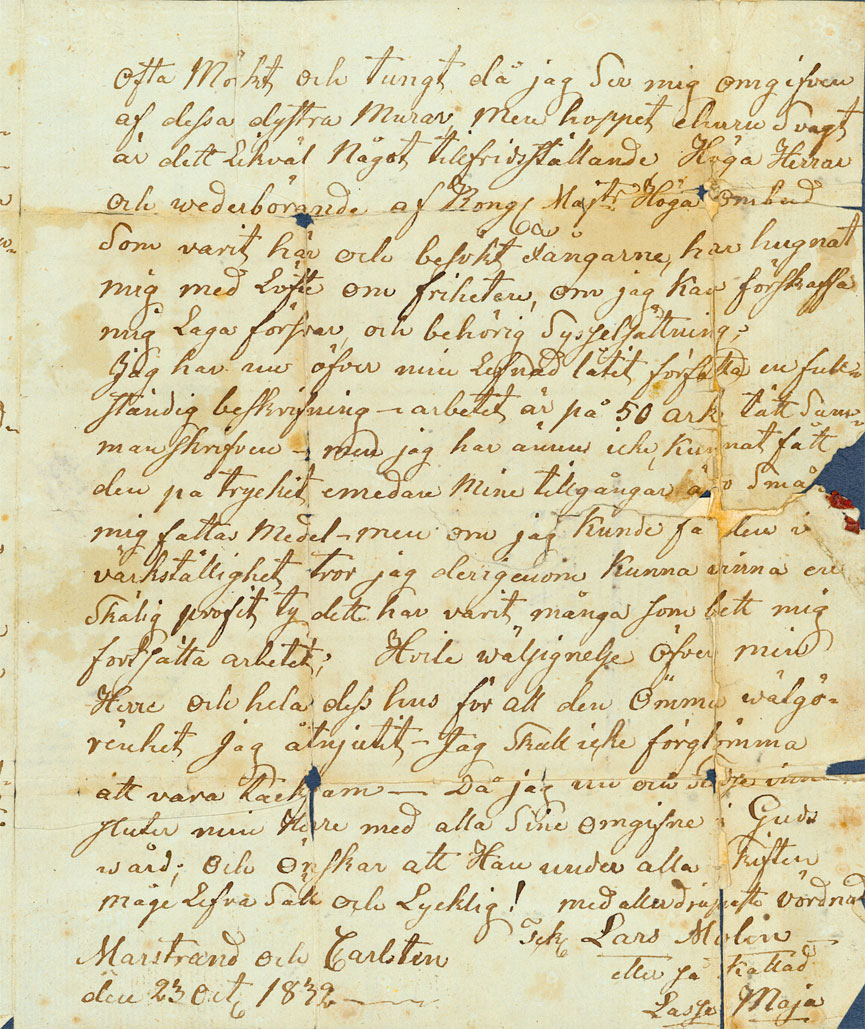 ofta Mörkt och tungt då jag Ser mig omgifven
af dessa dystra Murar, Men hoppet ehuru Svagt
är dett Likväl Något tilfridsställande Höga Herrar
och wederbörande af Kongl Majts Höga ombud
Som varit här och besökt Fångarne, har hugnat
mig med Löfte om friheten, om jag Kan förskaffa
mig Laga försvar, och behörig Sysselsättning;
Jag har nu öfver min Lefnad låtit författa en full-
ständig beskrifning - arbetet är på 50 ark tätt Sam-
manskrifven - men jag har ännu icke Kunnat fått
den på trycket emedan Mine tillgångar äro Små
mig fattas Medel - men om jag Kunde få den i
värkställighet, tror jag derigenom Kunna vinna en
Skälig profit ty dett har varit många som bett mig
fortsätta arbetet; Hvile wälsignelse öfver min
Herre och hela dess hus för all den Ömma wälgö-
renhet Jag åtnjutit - Jag Skall icke förglömma
att vara tacksam - Då jag nu och
sluter min Herre med alla Sine omgifne i Guds
wård; och Önskar att Han under alla Skiften
måge Lefva Säll och Lycklig! med alldra vördnad
Marstrand och Carlsten Lars Molin
den 23 Oct 1832 eller så Kallad
Lasse Maja